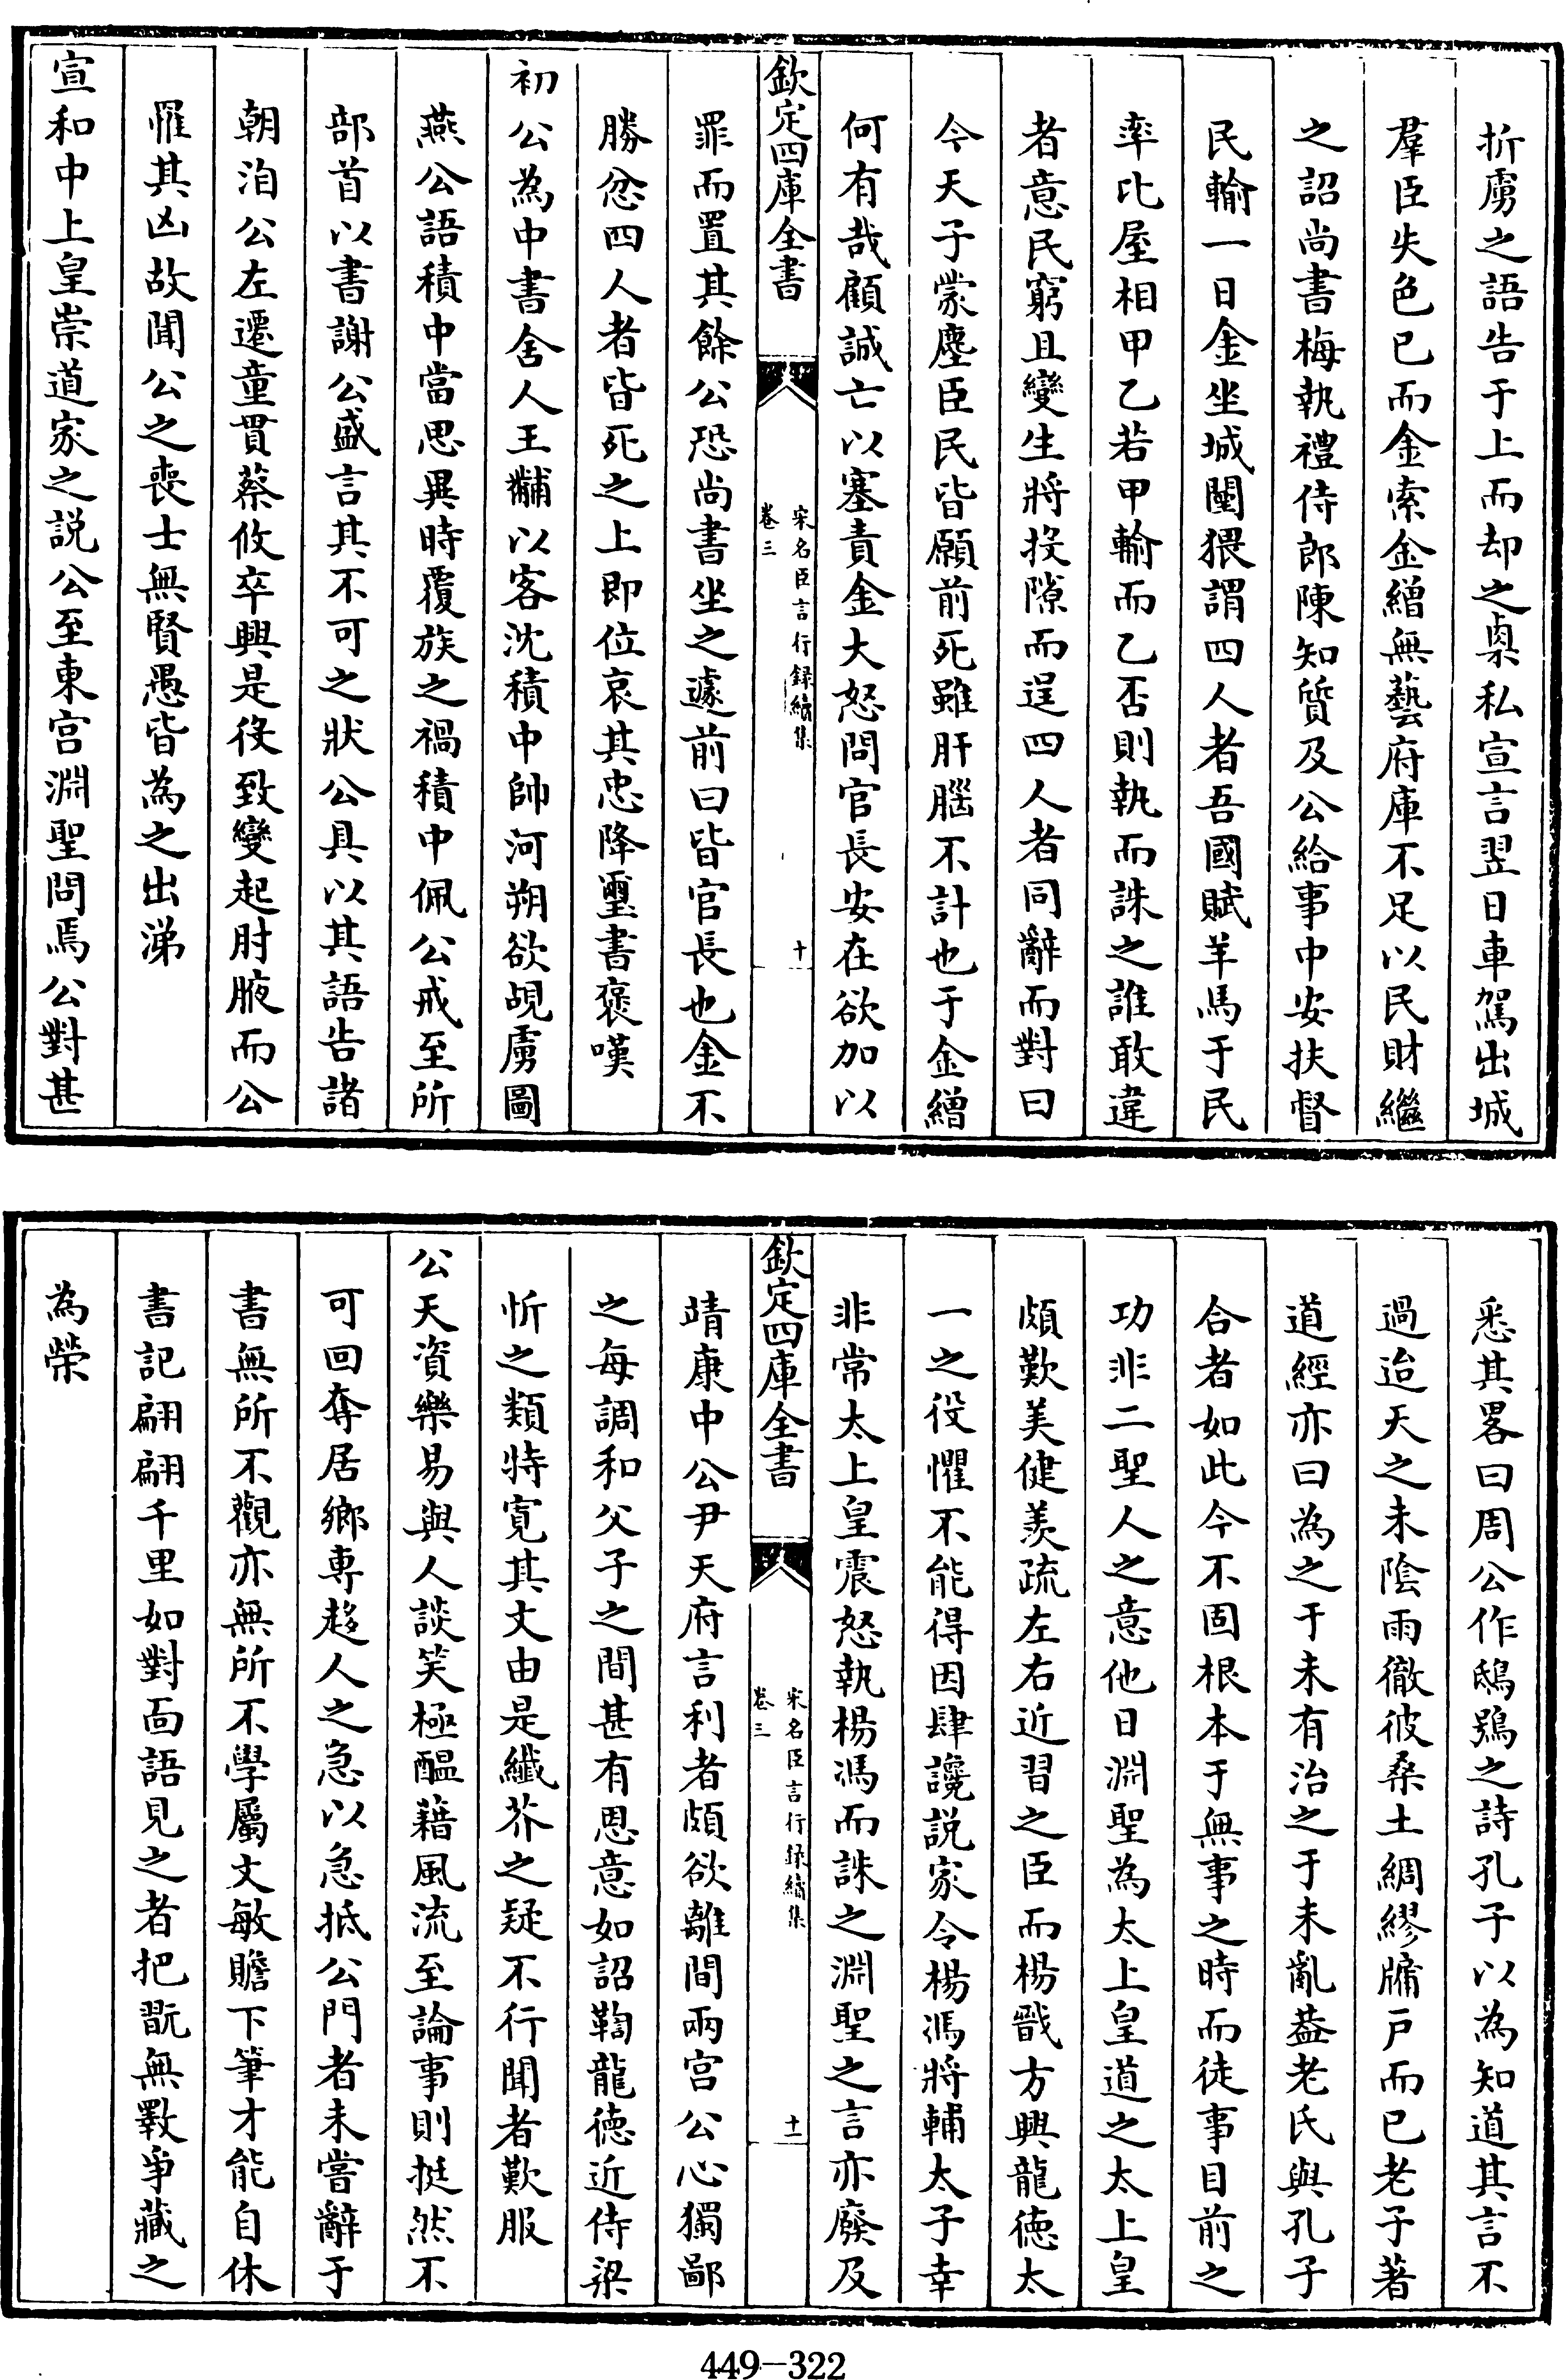 折虜之語告于上而却之㮚私宣言翌日車駕出城
羣臣失色已而金索金繒無藝府庫不足以民財繼
之詔尚書梅執禮侍郎陳知質及公給事中安扶督
民輸一日金坐城闉猥謂四人者吾國賦羊馬于民
率比屋相甲乙若甲輸而乙否則執而誅之誰敢違
者意民窮且變生將投隙而逞四人者同辭而對曰
今天子蒙塵臣民皆願前死雖肝腦不計也于金繒
何有哉顧誠亡以塞責金大怒問官長安在欲加以
欽定四庫全書
宋名臣言行録續集
卷三
十
罪而置其餘公恐尚書坐之遽前曰皆官長也金不
勝忿四人者皆死之上即位哀其忠降璽書褒嘆
初公為中書舍人王黼以客沈積中帥河朔欲覘虜圖
燕公語積中當思異時覆族之禍積中佩公戒至所
部首以書謝公盛言其不可之狀公具以其語告諸
朝洎公左遷童貫蔡攸卒興是役致變起肘腋而公
罹其凶故聞公之喪士無賢愚皆為之出涕
宣和中上皇崇道家之説公至東宫淵聖問焉公對甚
悉其畧曰周公作鴟鴞之詩孔子以為知道其言不
過迨天之未陰雨徹彼桑土綢繆牖戸而已老子著
道經亦曰為之于未有治之于未亂葢老氏與孔子
合者如此今不固根本于無事之時而徒事目前之
功非二聖人之意他日淵聖為太上皇道之太上皇
頗歎美健羨疏左右近習之臣而楊戩方興龍德太
一之役懼不能得因肆讒説家令楊馮將輔太子幸
非常太上皇震怒執楊馮而誅之淵聖之言亦廢及
欽定四庫全書
宋名臣言行録續集
卷三
十一
靖康中公尹天府言利者頗欲離間兩宫公心獨鄙
之每調和父子之間甚有恩意如詔鞫龍德近侍梁
忻之類特寛其文由是纖芥之疑不行聞者歎服
公天資樂易與人談笑極醖藉風流至論事則挺然不
可回奪居鄉専趍人之急以急抵公門者未嘗辭于
書無所不觀亦無所不學屬文敏贍下筆才能自休
書記翩翩千里如對面語見之者把翫無斁爭藏之
為榮
449-322